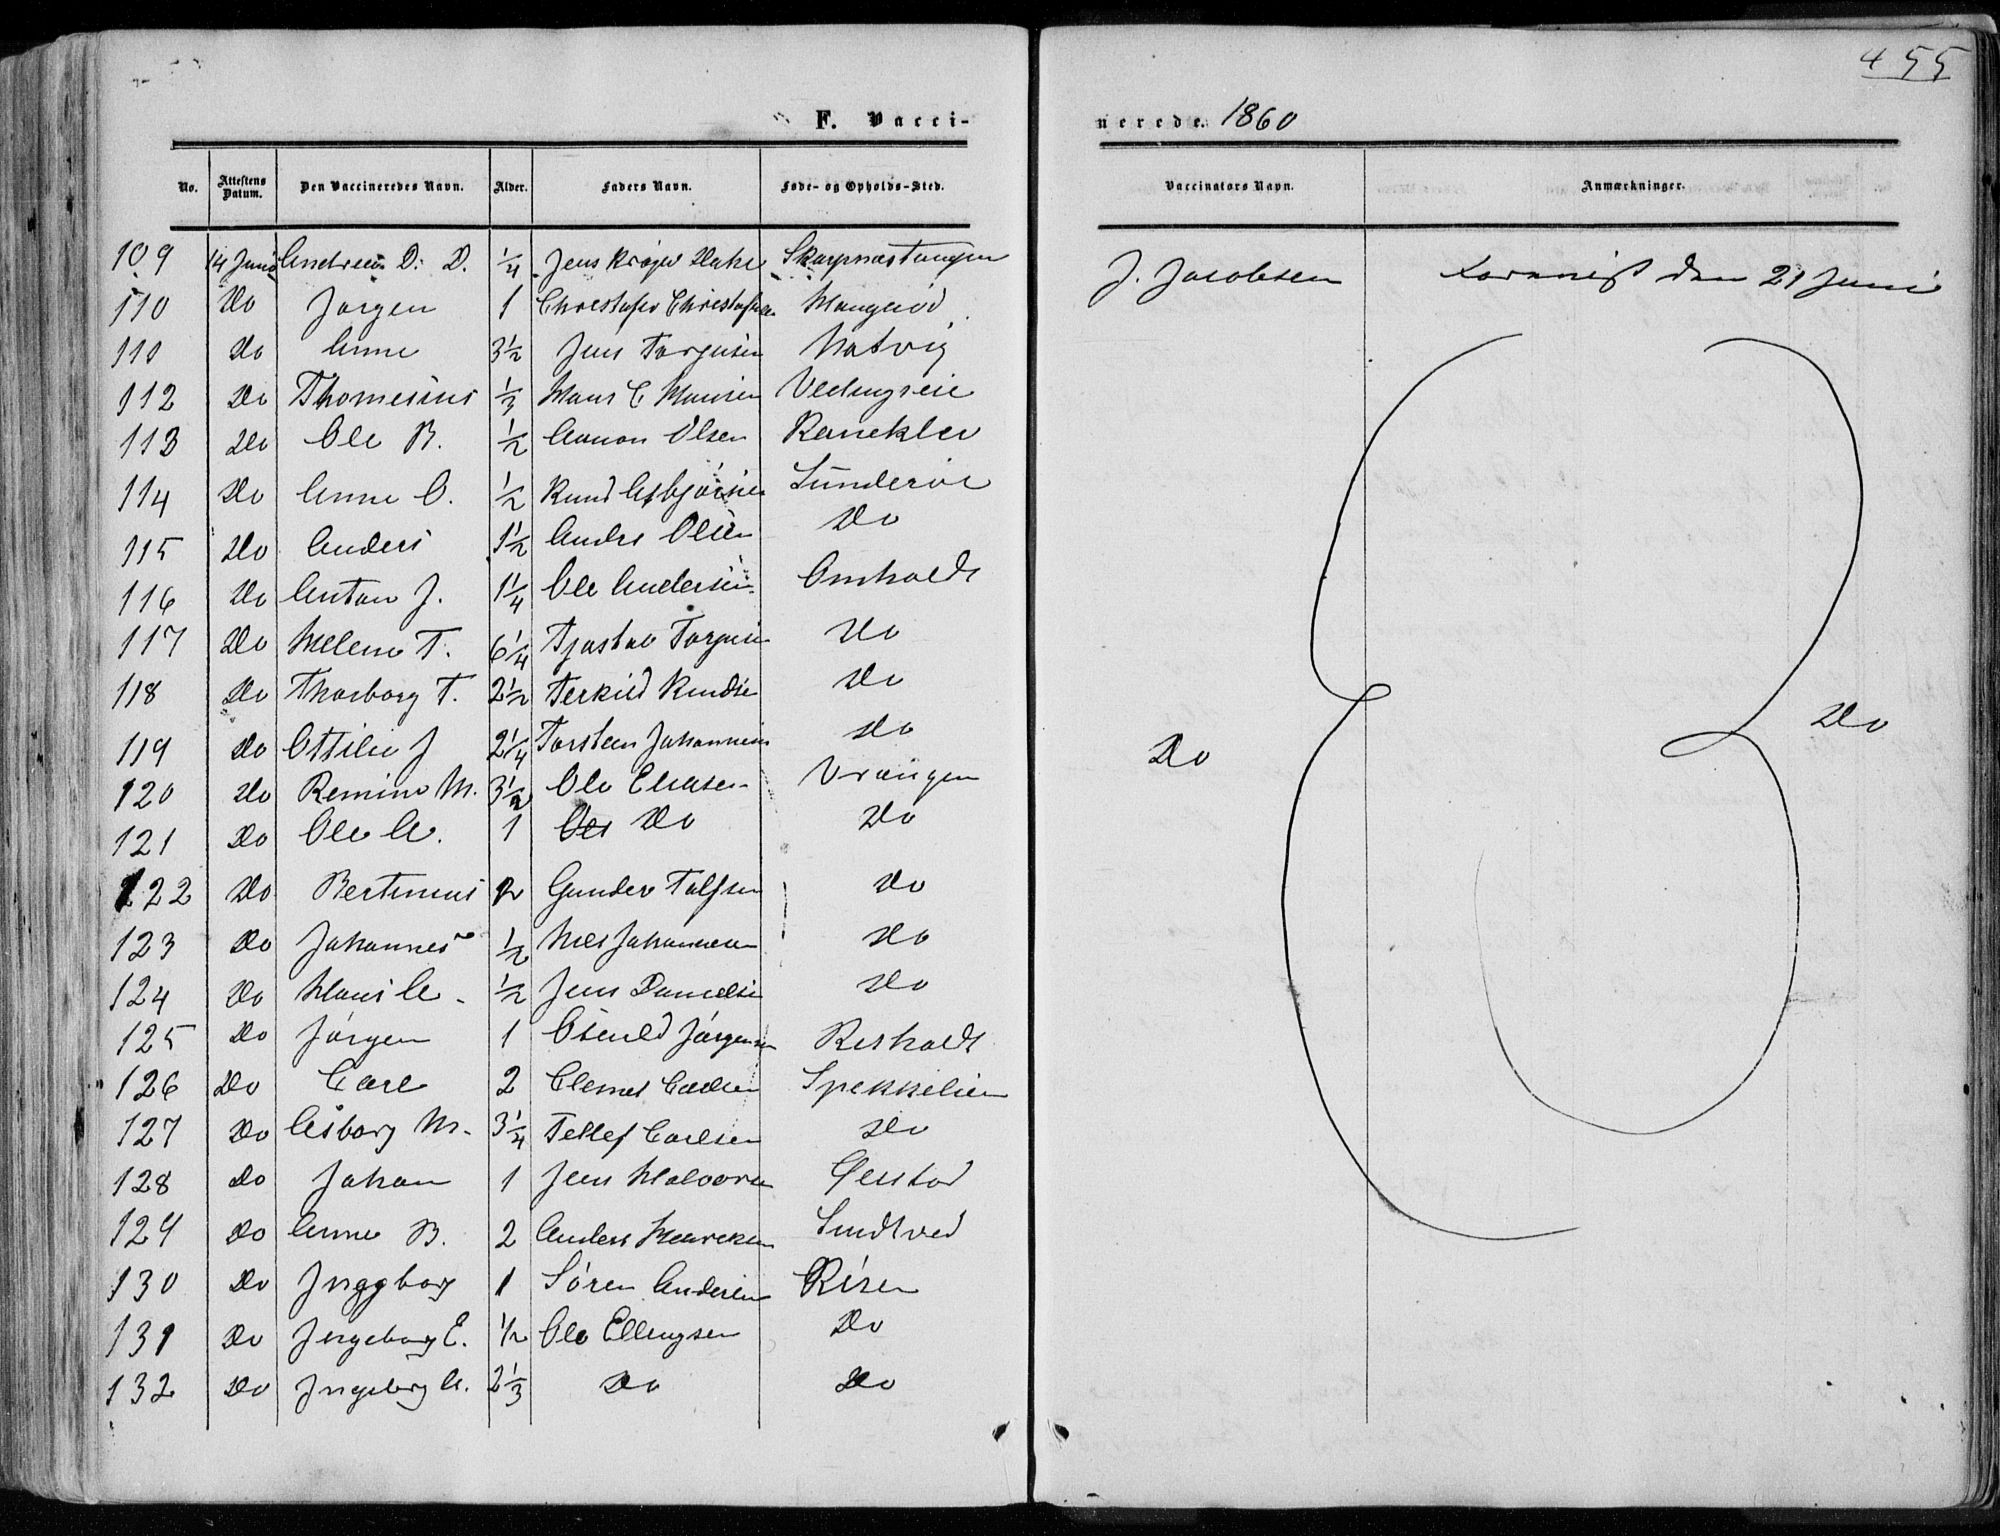 455
F. Vacci-
nerede. 1860
No. Attestens Datum. Den Vaccineredes Navn. Alder. Faders Navn. Føde- og Opholds-Sted. Vaccinators Navn. Anmærkninger.
109 14 Juni Andreas D. D. 1/4 Jens Krøger Dahl Skarpnæstangen J. Jacobsen den 21 Juni
110 Do Jørgen 1 Christofer Christofersen
111 Do Anne 3 1/2 Jens Torgusen Natvig
112 Do Thomesius 1/3 Hans C Hansen
113 Do Ole B. 1/2 Aanon Olsen Raneklev
114 Do Anne O. 1/2 Knud Asbjørsen Sünderøe
115 Do Anders 1 1/2 Andrs Olsen Do
116 Do Anton J. 1 1/4 Ole Andersen Omholdt
117 Do Helene T. 6 1/4 Tjøstov Torgusen Do
118 Do Thorborg T. 2 1/2 Terkild Knudsen Do
119 Do Ottilie J 2 1/4 Torsten Johannesen Do
Do Do
120 Do Remine M. 3 1/2 Ole Eliasen Vrængen
121 Do Ole A. 1 Do Do
122 Do Bertinius 2 Gunder Tolfsen Do
123 Do Johannes 1/2 Nils Johannesen Do
124 Do Hans A. 1/2 Jens Danielsen Do
125 Do Jørgen 1 Osuld Jørgensen Risholdt
126 Do Carl 2 Clemet Carlsen Spekkelien
127 Do Asborg M. 3 1/4 Tellef Carlsen Do
128 Do Johan 1 Jens Halvorsen
129 Do Anne B. 2 Anders Henriksen
130 Do Inggborg 1 Søren Andersen Risen
131 Do Ingeborg E. 1/2 Ole Ellingsen Do
132 Do Ingeborg A. 2 1/3 Do Do